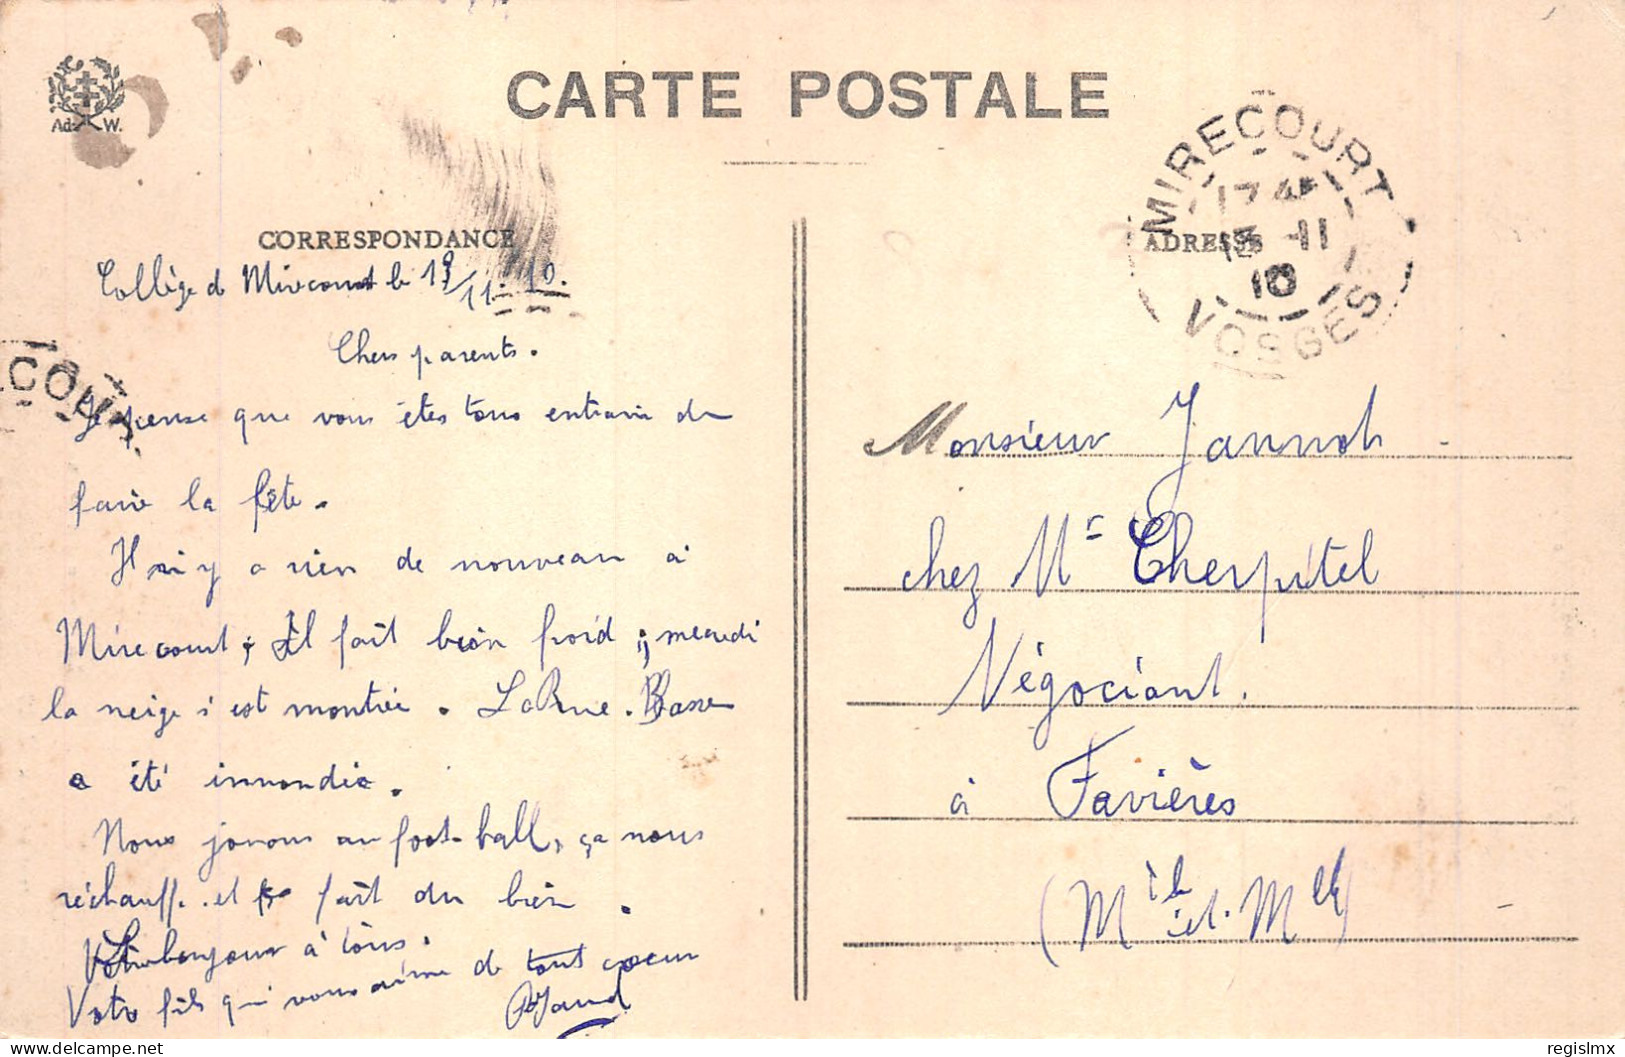 CARTE POSTALE
Ad. W.
MIRECOURT
13 -11
10
VOSGES
CORRESPONDANCE
ADRESSE
Collège de Mirecourt le
11. 10.
Chers parents.
COUR
Je pense que vous êtes tous entrain de
faire la fête.
Il n'y a rien de nouveau à
Mirecourt, il fait bien froid; mercredi
la neige s'est montrée. La Rue-Basse
a été innondée.
Nous jouons au foot-ball, ça nous
réchauffe et fait du bien.
bonjour à tous.
Votre fils qui vous aime de tout coeur
Monsieur Jannot
chez Mr Cherpitel
Négociant.
à Favières
(M et Mlle)
regislmx